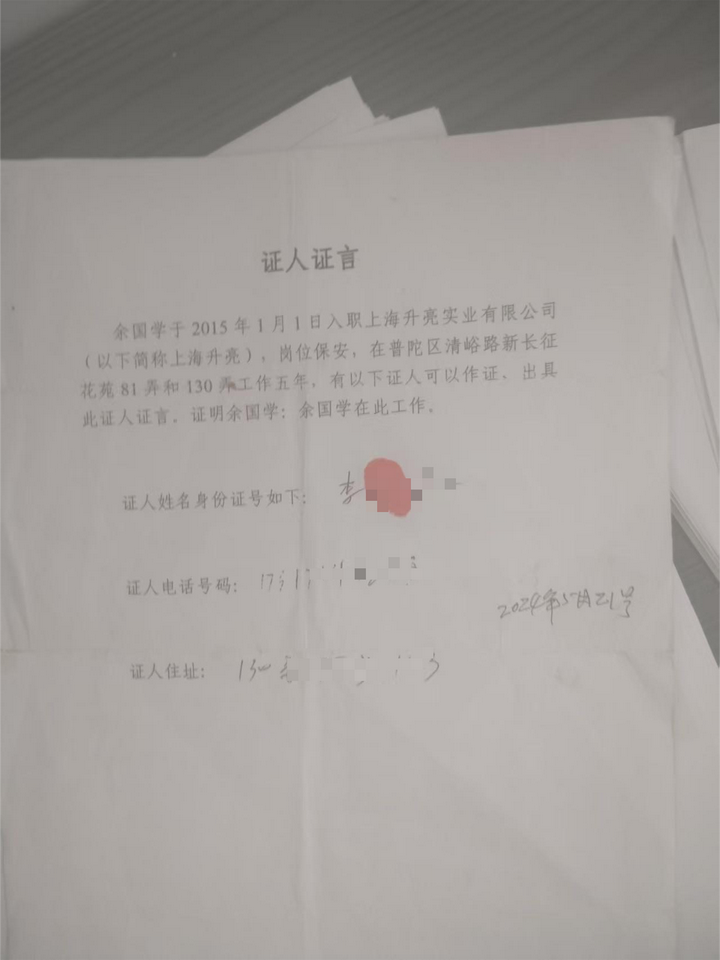 证人证言
余国学于 2015 年 1 月 1 日入职上海升亮实业有限公司
（以下简称上海升亮），岗位保安，在普陀区清峪路新长征
花苑 81 弄和 130 弄工作五年，有以下证人可以作证，出具
此证人证言。证明余国学：余国学在此工作。
证人姓名身份证号如下：李
证人电话号码：
2024年5月21号
证人住址：